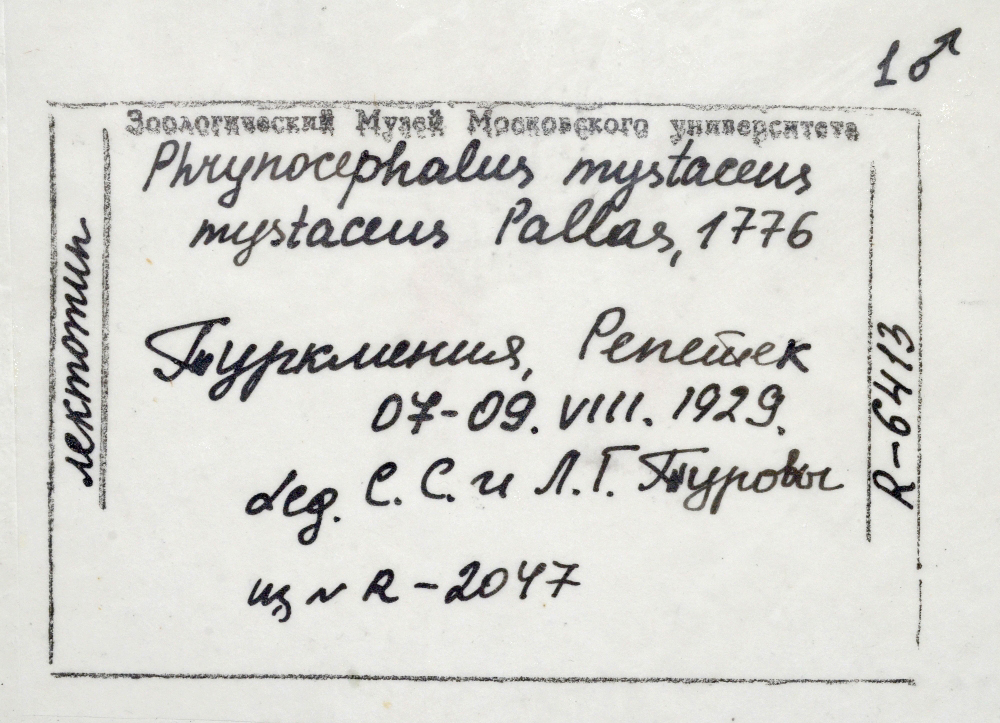 1♂
Зоологический Музей Московского университета
Phrynocephalus mystaceus
mystaceus Pallas, 1776
лектотип
Туркмения, Репетек
07-09. VIII. 1929.
leg. С. С. и Л. Г. Туровы
из N R-2047
R-6413